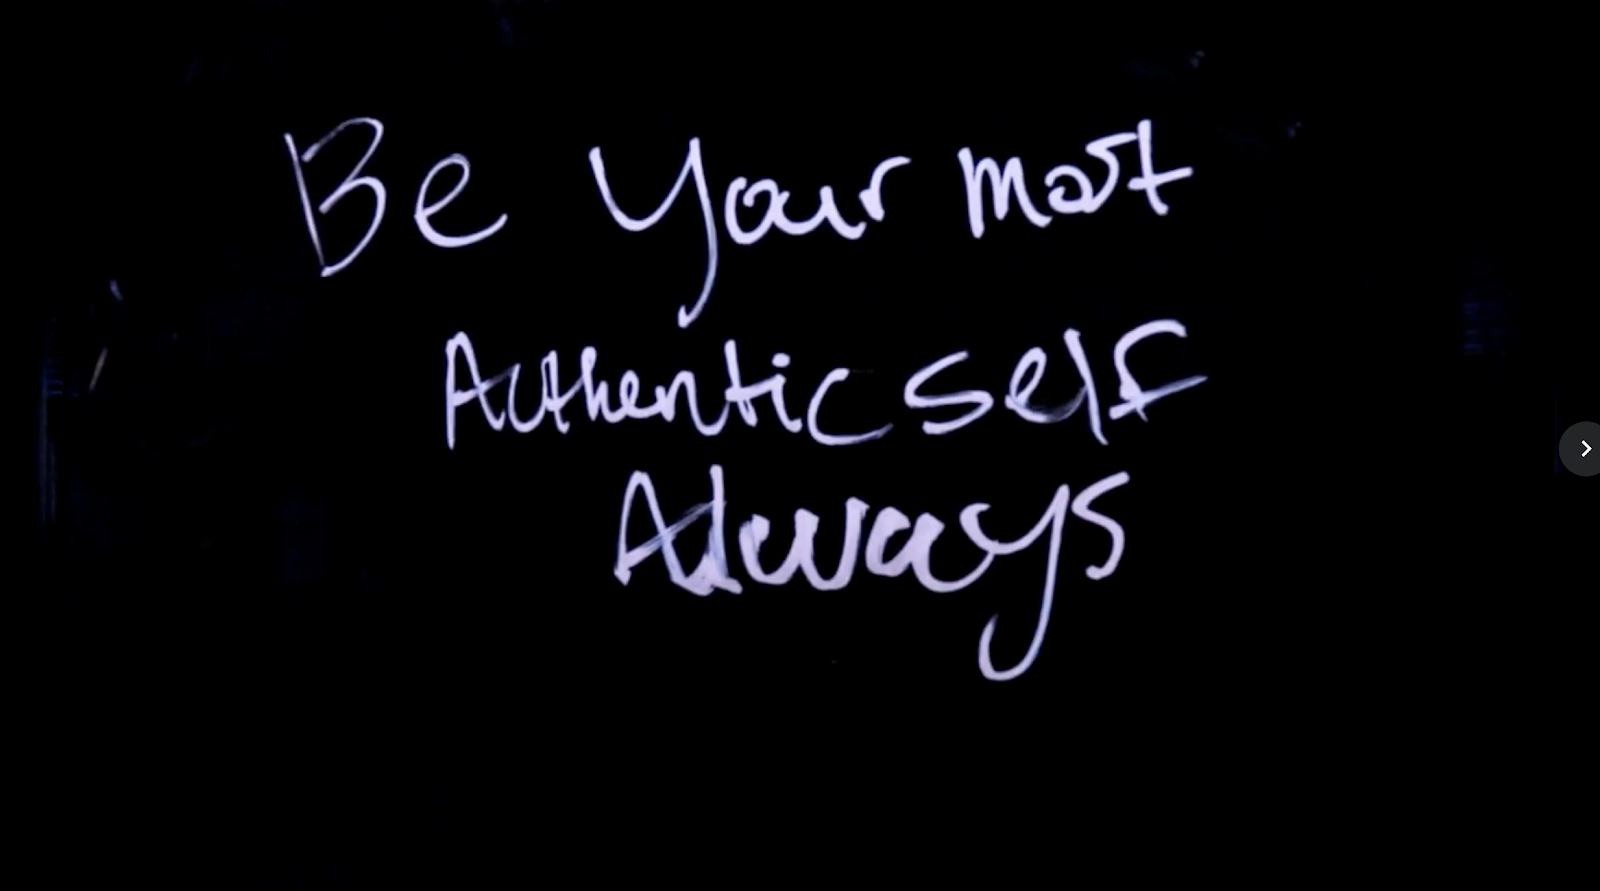 Be Your most
Authentic self
Always